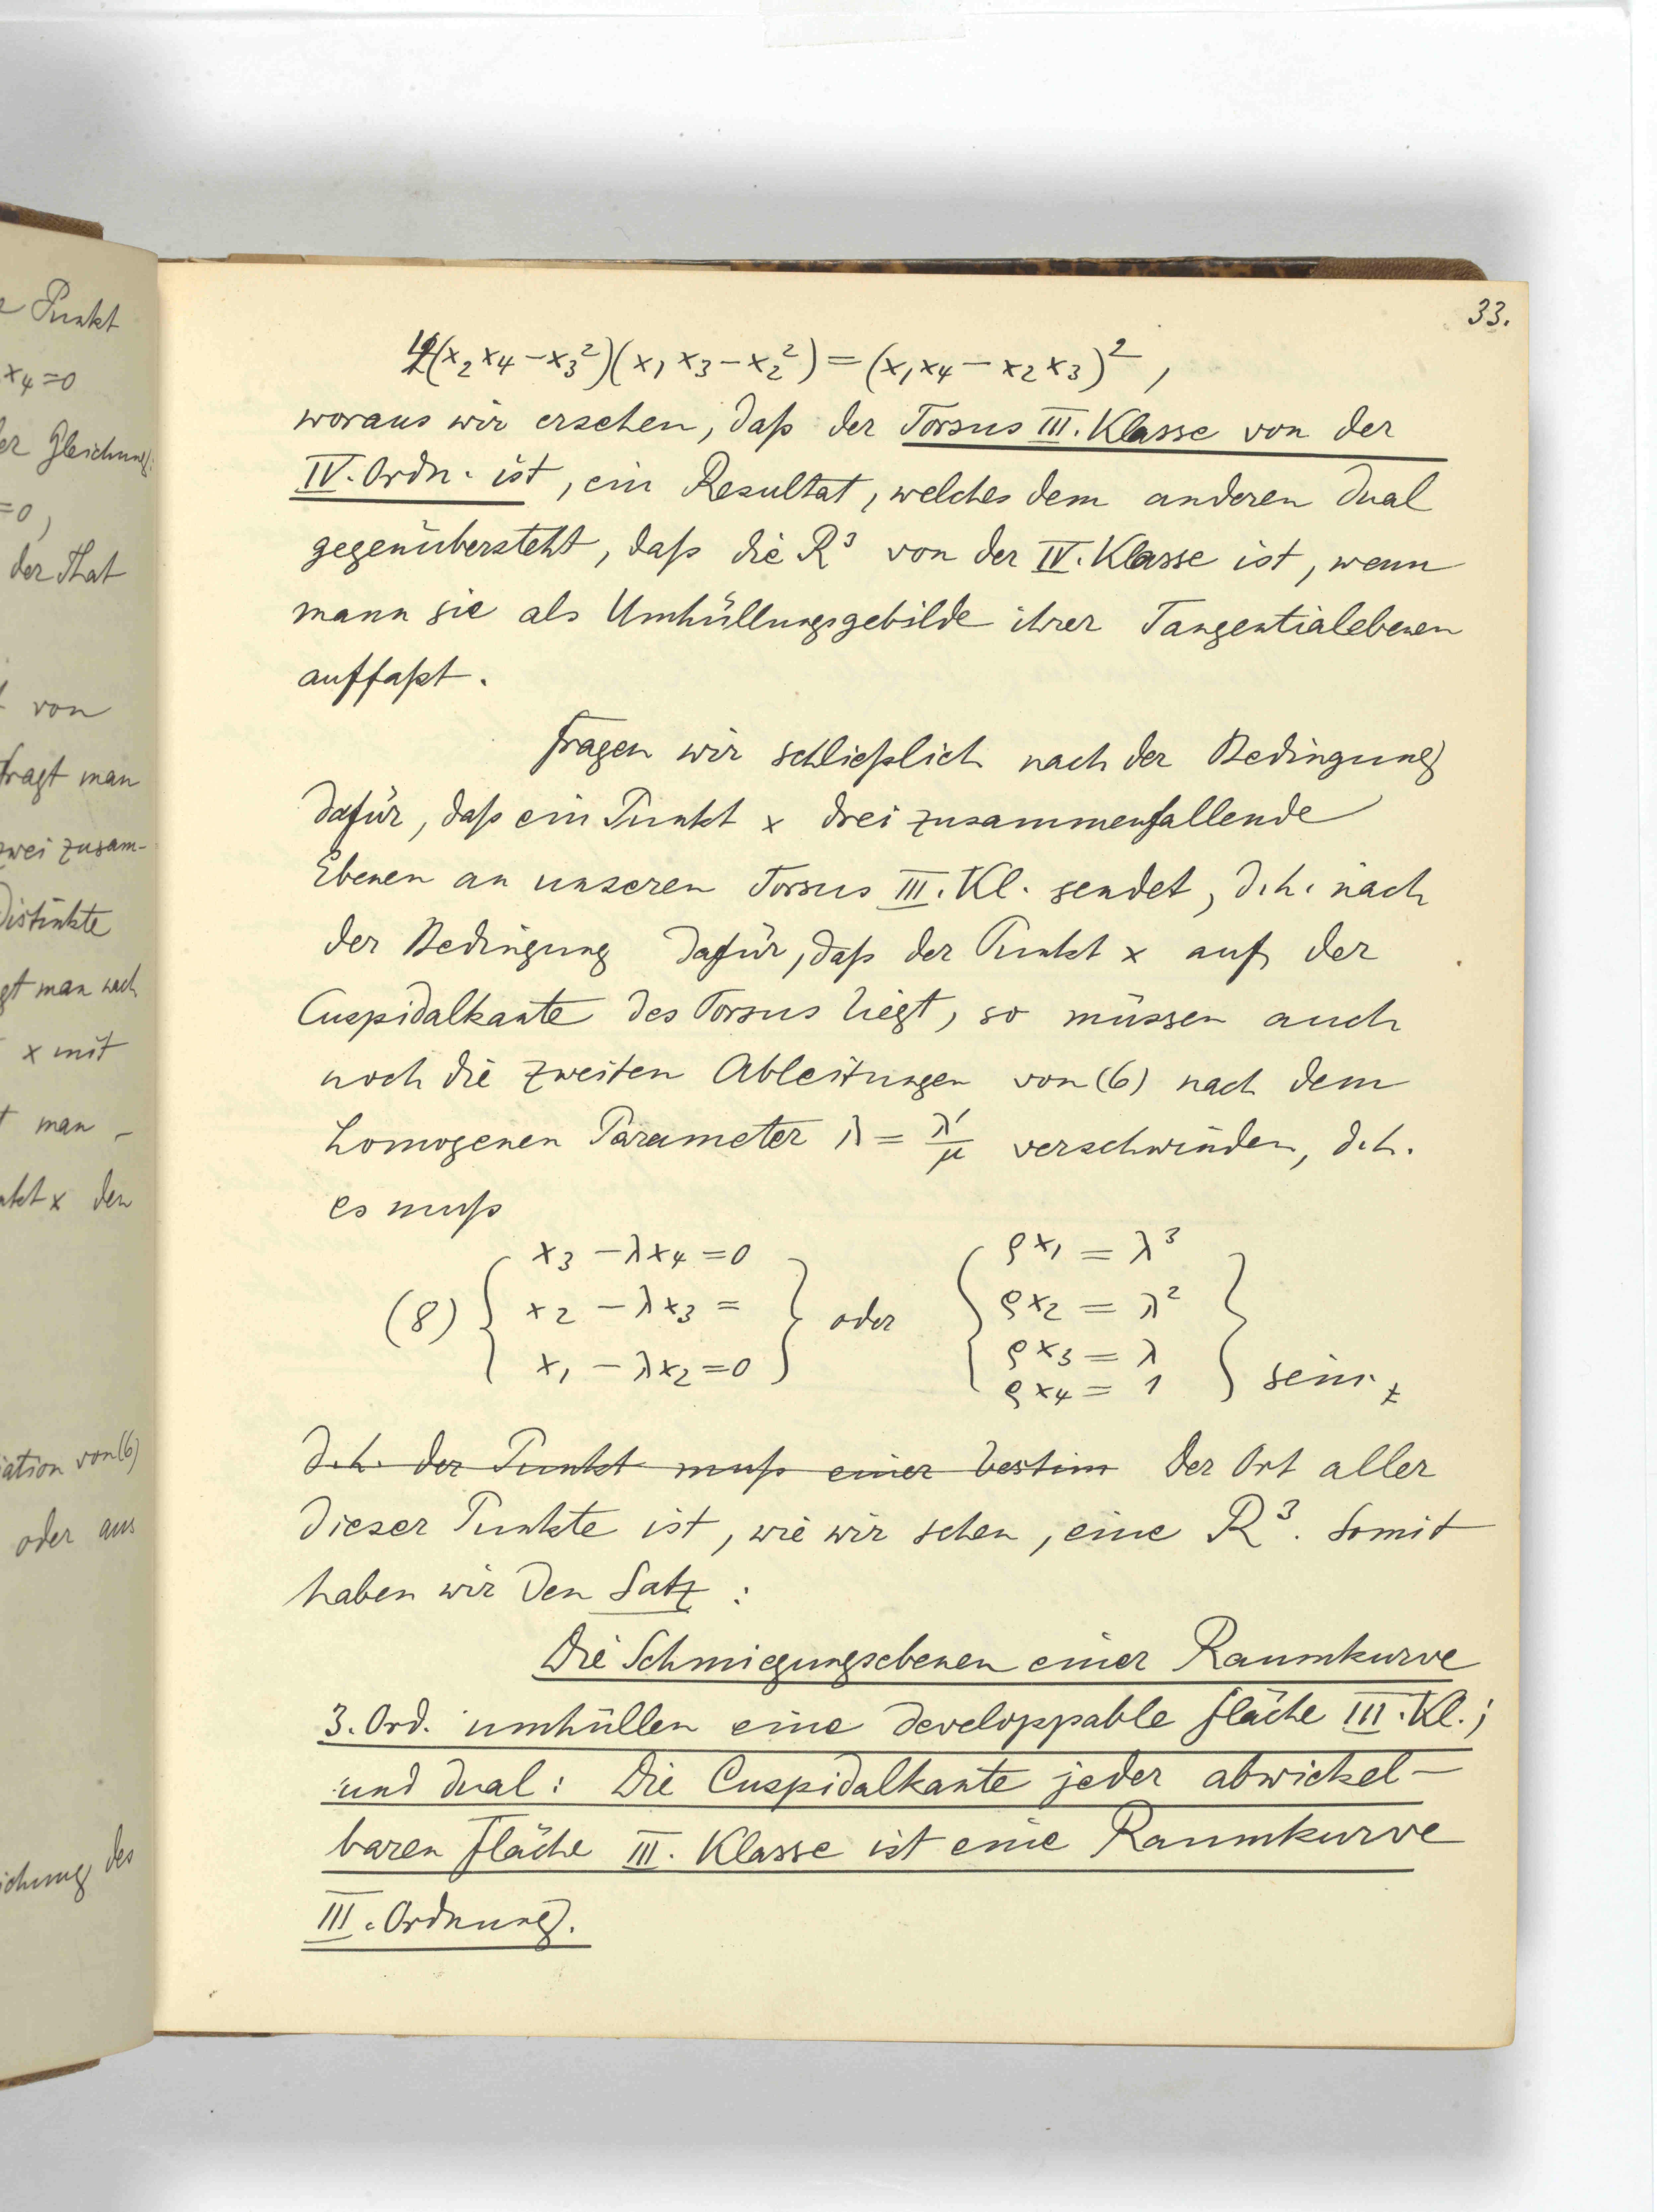 e Punkt
x4=0
er Gleichung:
=0,
der That
von
fragt man
zwei zusam-
distinkte
gt man nach
x mit
man -
nkt x den
iation von (6)
oder aus
ichung des
33.
4(x₂x₄ - x₃²)(x₁x₃ - x₂²) = (x₁x₄ - x₂x₃)²,
woraus wir ersehen, daß der Torsus III. Klasse von der
IV. Ordn. ist, ein Resultat, welches dem anderen dual
gegenübersteht, daß die R³ von der IV. Klasse ist, wenn
mann sie als Umhüllungsgebilde ihrer Tangentialebenen
auffaßt.
Fragen wir schließlich nach der Bedingung
dafür, daß ein Punkt x drei zusammenfallende
Ebenen an unseren Torsus III. Kl. sendet, d.h. nach
der Bedingung dafür, daß der Punkt x auf der
Cuspidalkante des Torsus liegt, so müssen auch
noch die zweiten Ableitungen von (6) nach dem
homogenen Parameter λ = λ'/μ verschwinden, d.h.
es muß
(8) { x₃ - λx₄ = 0 } oder { ρx₁ = λ³
x₂ - λx₃ = ρx₂ = λ²
x₁ - λx₂ = 0 ρx₃ = λ
ρx₄ = 1 } sein.
d.h. der Punkt muß einer bestim Der Ort aller
dieser Punkte ist, wie wir sehen, eine R³. Somit
haben wir den Satz:
Die Schmiegungsebenen einer Raumkurve
3. Ord. umhüllen eine developpable Fläche III. Kl.;
und dual: Die Cuspidalkante jeder abwickel-
baren Fläche III. Klasse ist eine Raumkurve
III. Ordnung.